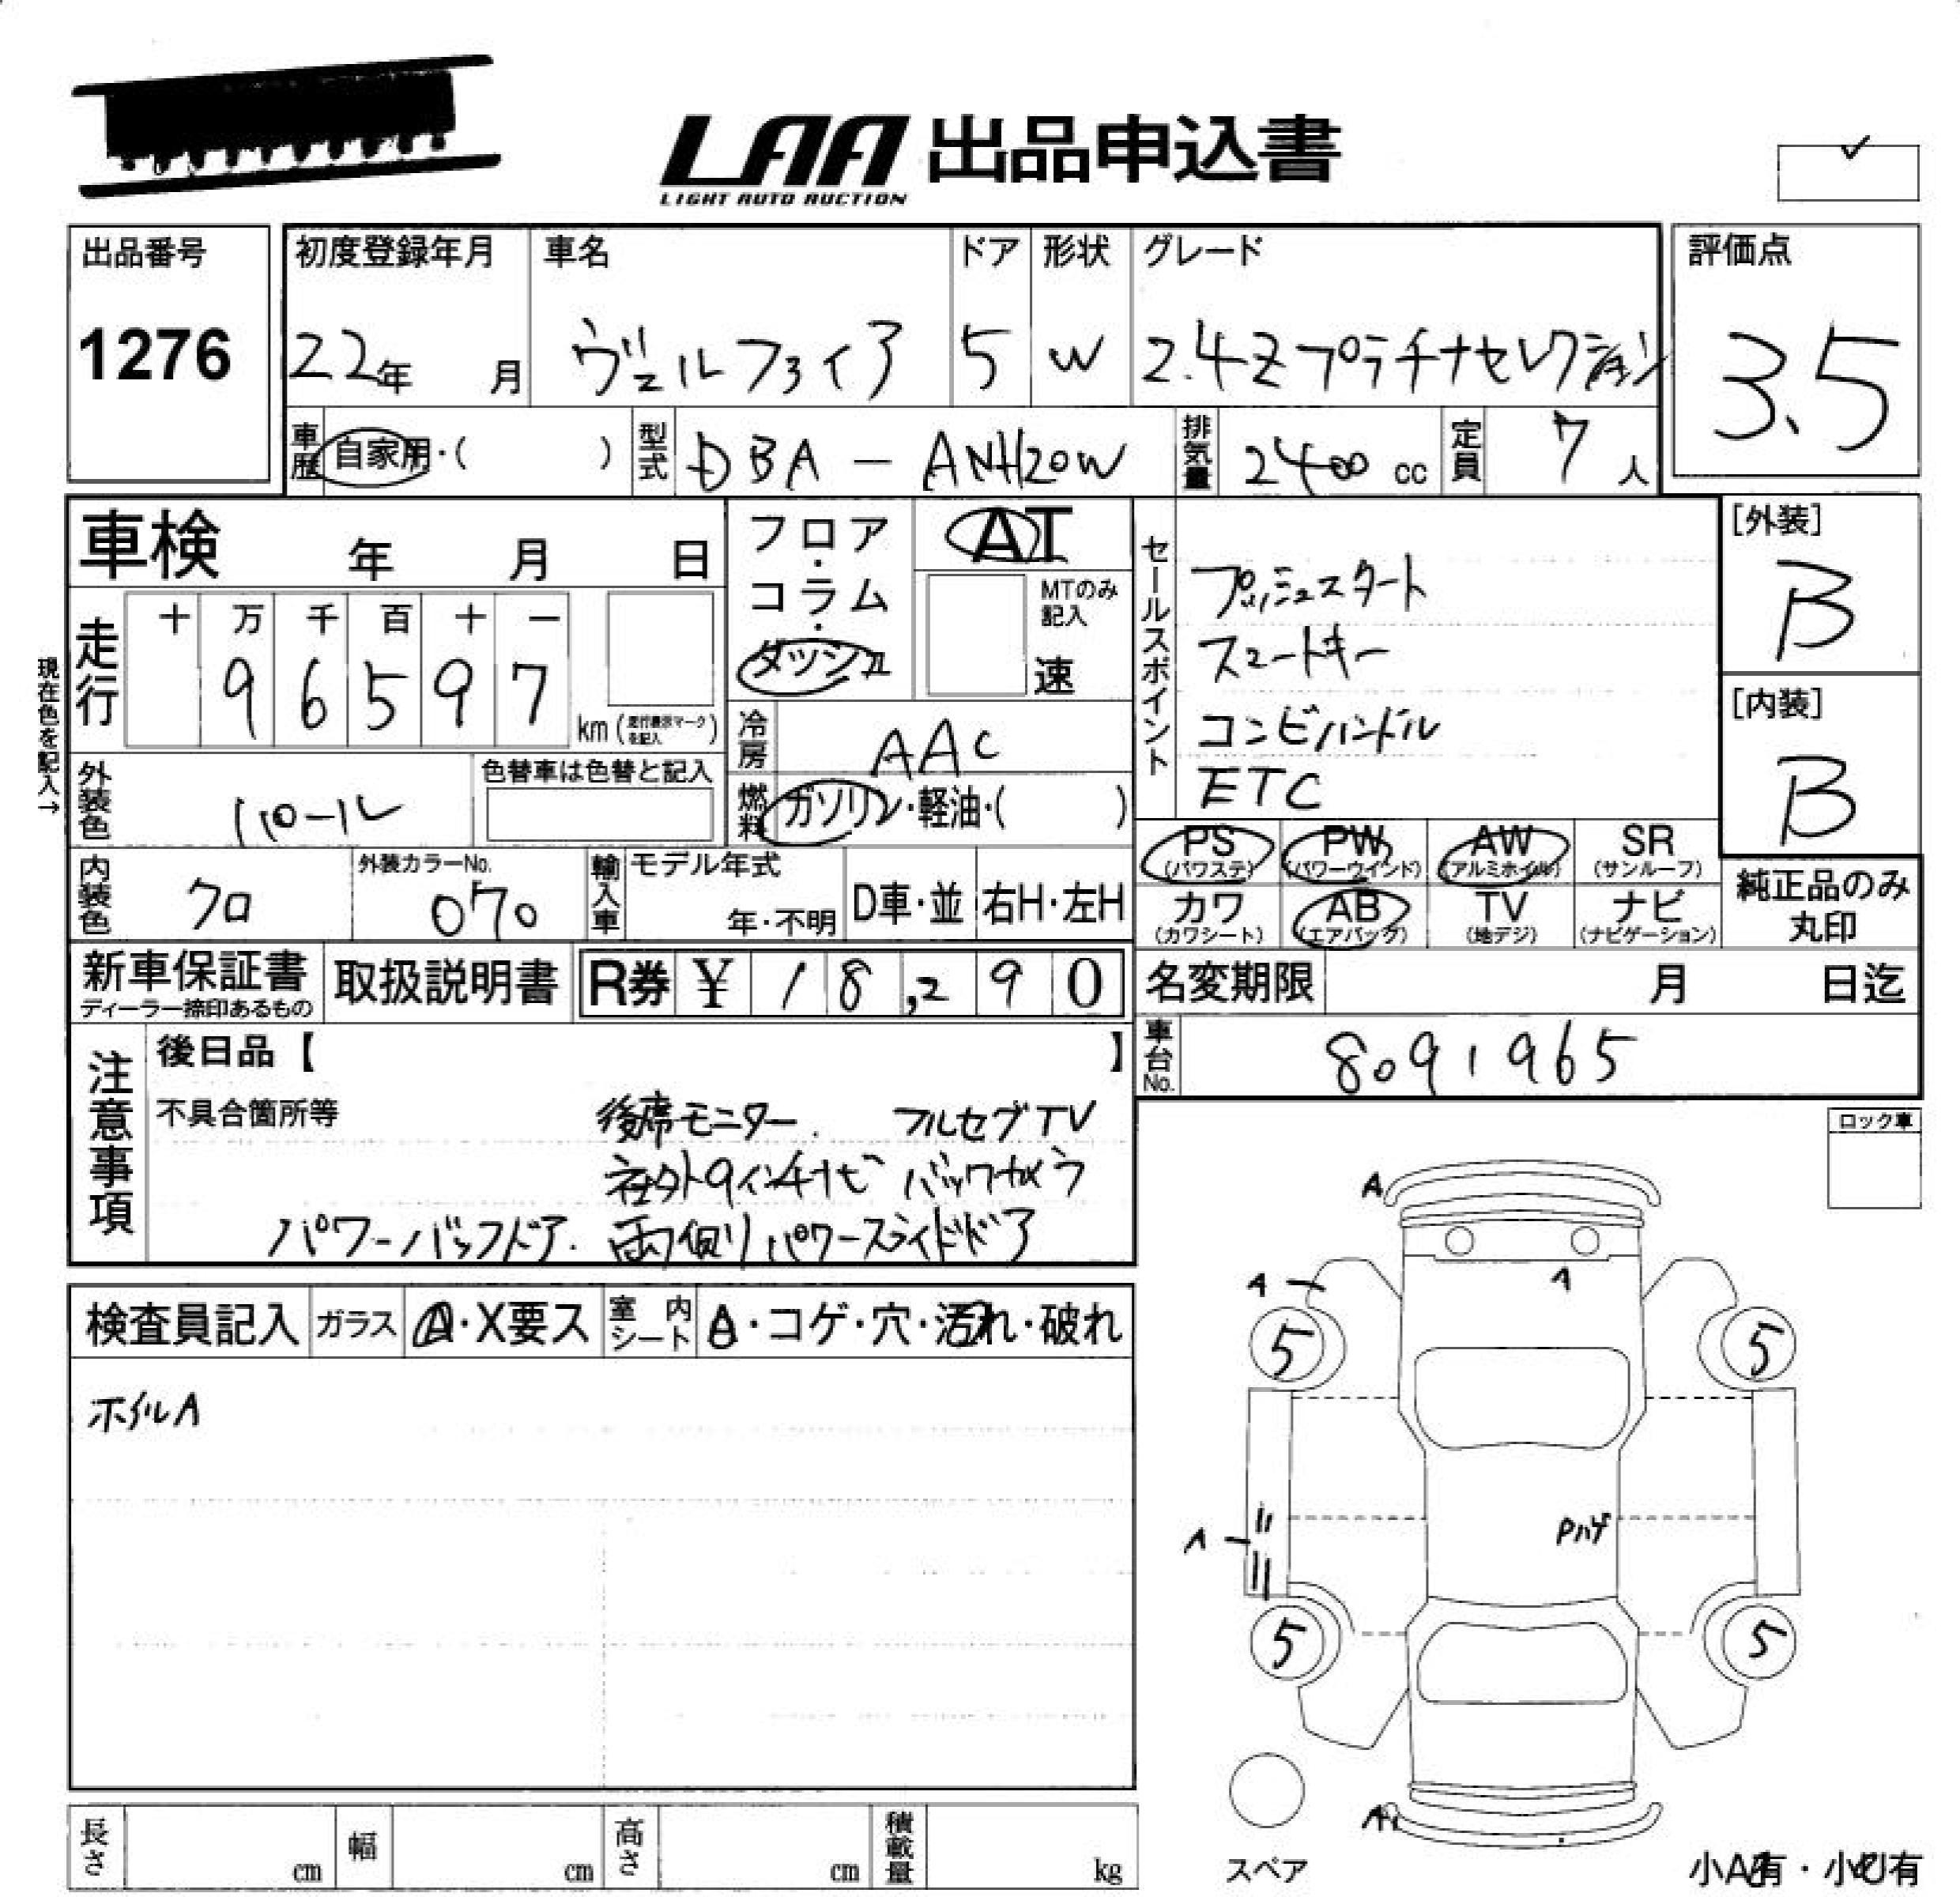 LAA 出品申込書
LIGHT AUTO AUCTION
出品番号 初度登録年月 車名 ドア 形状 グレード 評価点
1276 22年 月 ヴェルファイア 5 W 2.4Zプラチナセレクション 3.5
車歴 自家用・( ) 型式 DBA-ANH20W 排気量 2400 cc 定員 7 人
車検 年 月 日
フロア・コラム・ダッシュ
AT
MTのみ記入
速
セールスポイント
プッシュスタート
スマートキー
コンビハンドル
ETC
[外装]
B
[内装]
B
現在色を記入→
走行 十 万 千 百 十 一
9 6 5 9 7
km (走行表示マークを記入)
冷房 AAC
外装色 パール 色替車は色替と記入
燃料 ガソリン・軽油・( )
PS (パワステ) PW (パワーウインド) AW (アルミホイル) SR (サンルーフ)
カワ (カワシート) AB (エアバック) TV (地デジ) ナビ (ナビゲーション)
純正品のみ
丸印
内装色 クロ 外装カラーNo. 070 輸入車 モデル年式 年・不明 D車・並 右H・左H
新車保証書 取扱説明書 R券 ¥ 18,290
ディーラー捺印あるもの
名変期限 月 日迄
車台No. 8091965
注意事項
後日品【 】
不具合箇所等 後席モニター. フルセグTV
社外9インチナビ バックカメラ
パワーバックドア. 両側パワースライドドア
ロック車
検査員記入 ガラス A・X要ス 室内シート A・コゲ・穴・汚れ・破れ
ホイルA
A
A
A
5 5
A
Pハゲ
5 5
A
スペア
小A有・小凹有
長さ cm 幅 cm 高さ cm 積載量 kg